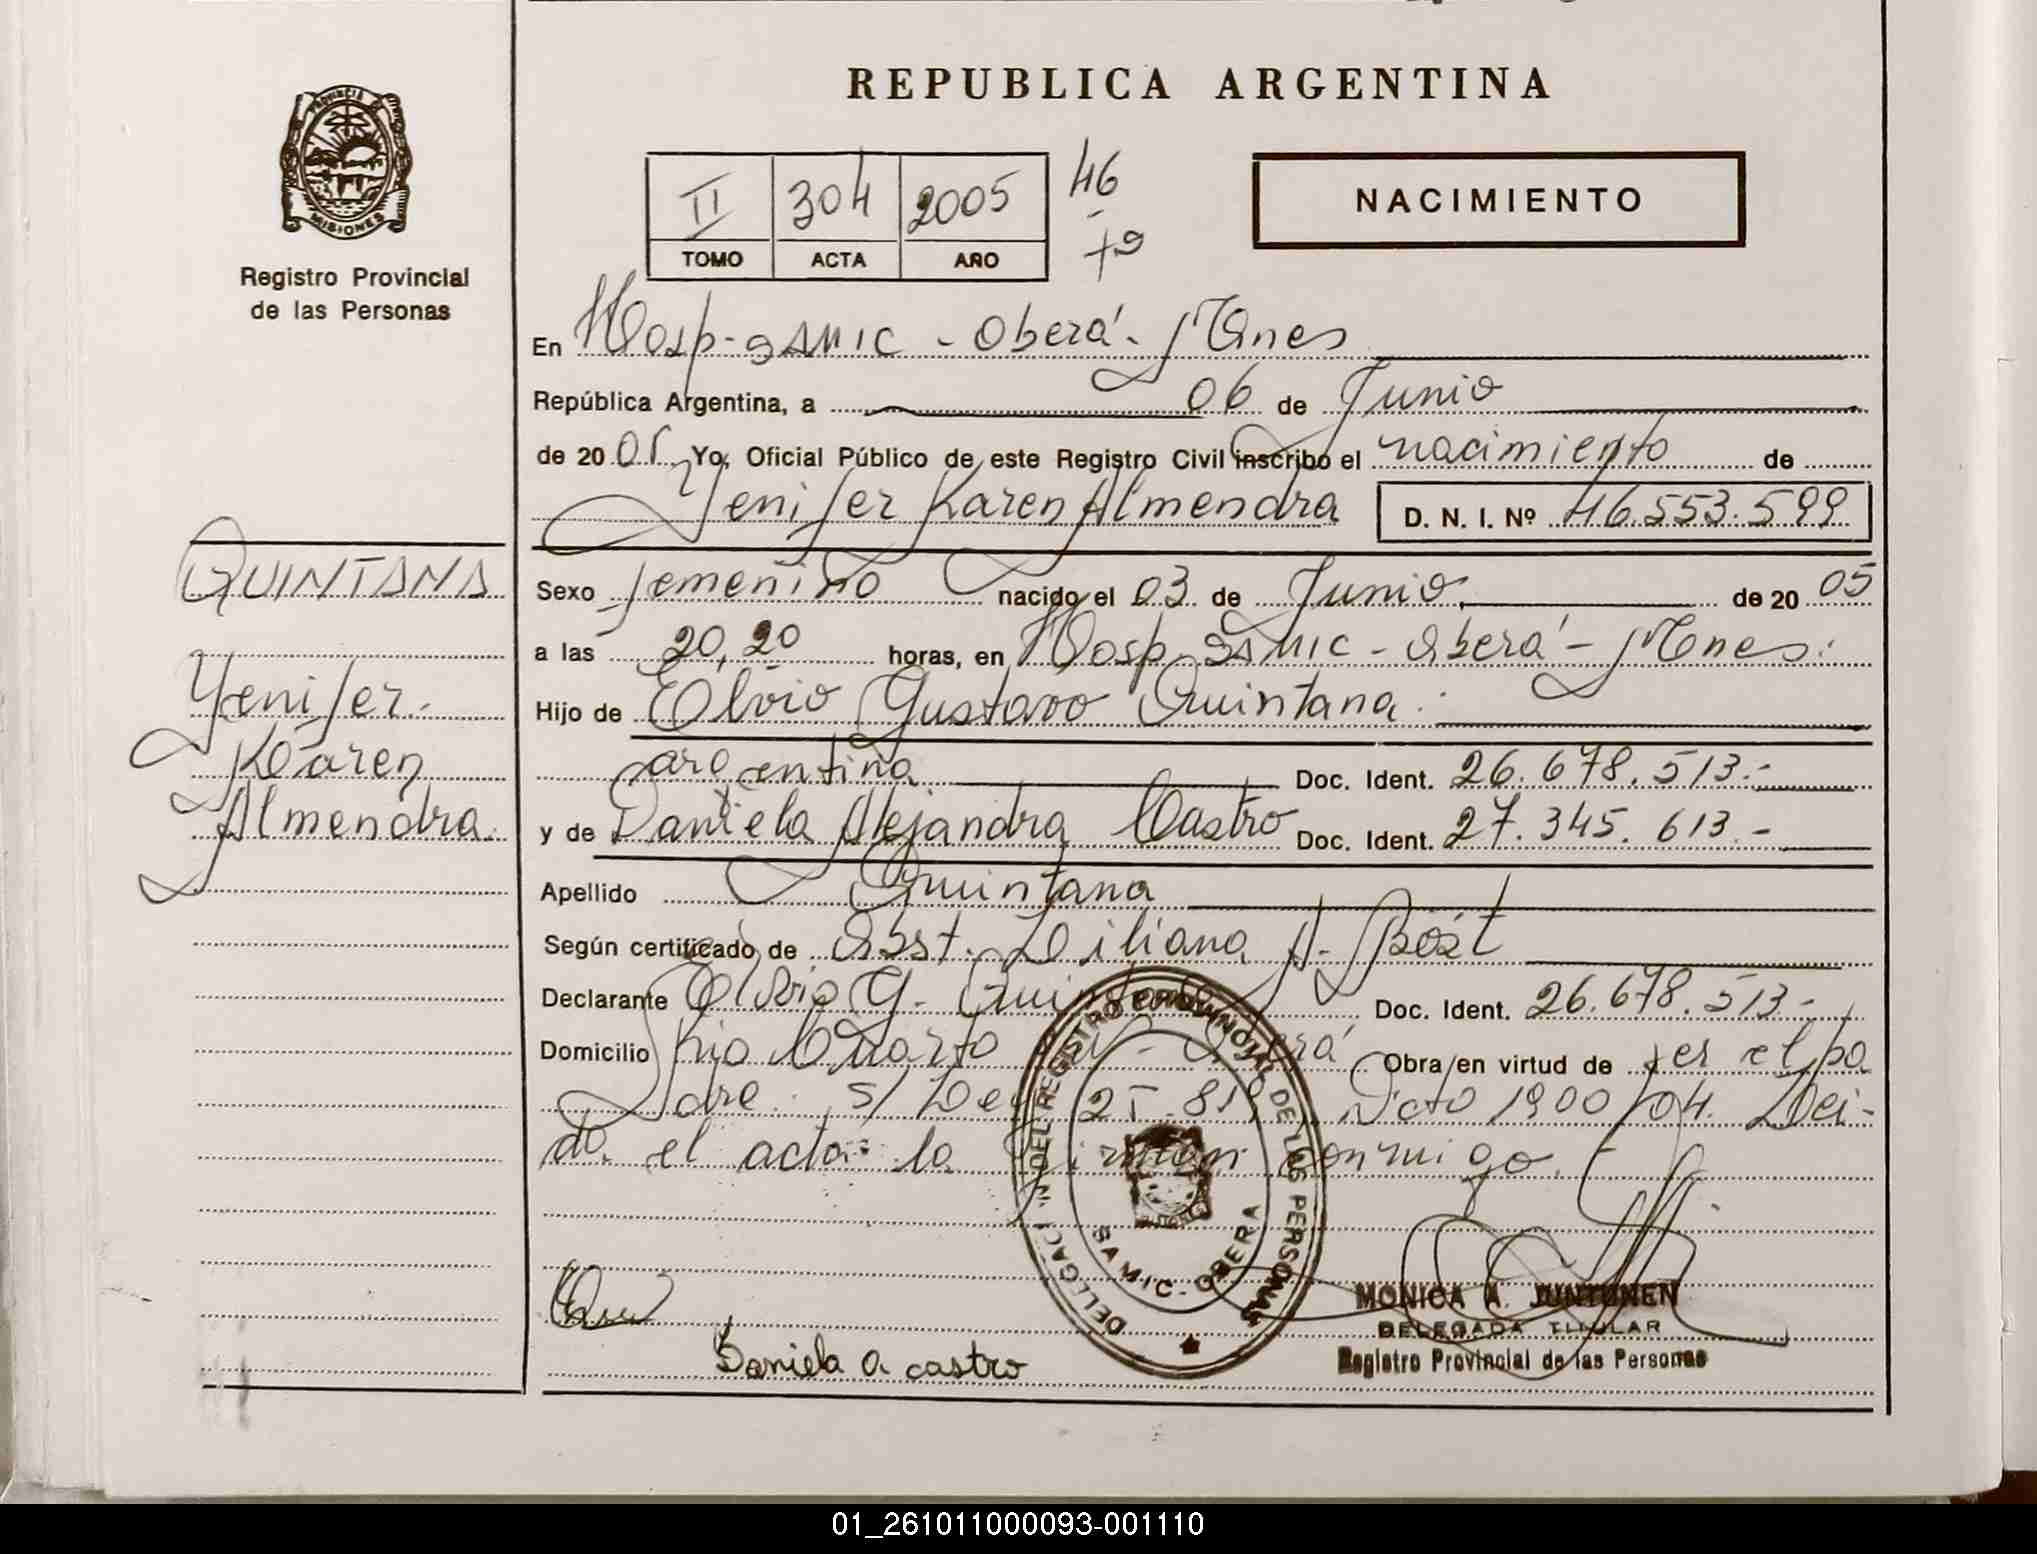 REPUBLICA ARGENTINA
PROVINCIA DE MISIONES
Registro Provincial
de las Personas
II 304 2005
TOMO ACTA AÑO
46
79
NACIMIENTO
En Hosp. SAMIC - Oberá - Mnes
República Argentina, a 06 de Junio
de 2005 Yo, Oficial Público de este Registro Civil inscribo el nacimiento de
Yenifer Karen Almendra D. N. I. Nº 46.553.599
QUINTANA
Yenifer
Karen
Almendra
Sexo femenino nacido el 03 de Junio de 2005
a las 20,20 horas, en Hosp. SAMIC - Oberá - Mnes.
Hijo de Elvio Gustavo Quintana
argentina Doc. Ident. 26.678.513.-
y de Daniela Alejandra Castro Doc. Ident. 27.345.613.-
Apellido Quintana
Según certificado de Obst. Liliana A.
Declarante Elvio G. Quintana Doc. Ident. 26.678.513.-
Domicilio Rio Cuarto Oberá Obra en virtud de ser el pa
dre. s/ Ley Dcto 1900/04. Leí-
do el acta: la firman conmigo.
DELEGACION DEL REGISTRO PROVINCIAL DE LAS PERSONAS
SAMIC - OBERA
Daniela A Castro
MONICA A. JUNTUNEN
DELEGADA TITULAR
Registro Provincial de las Personas
01_261011000093-001110